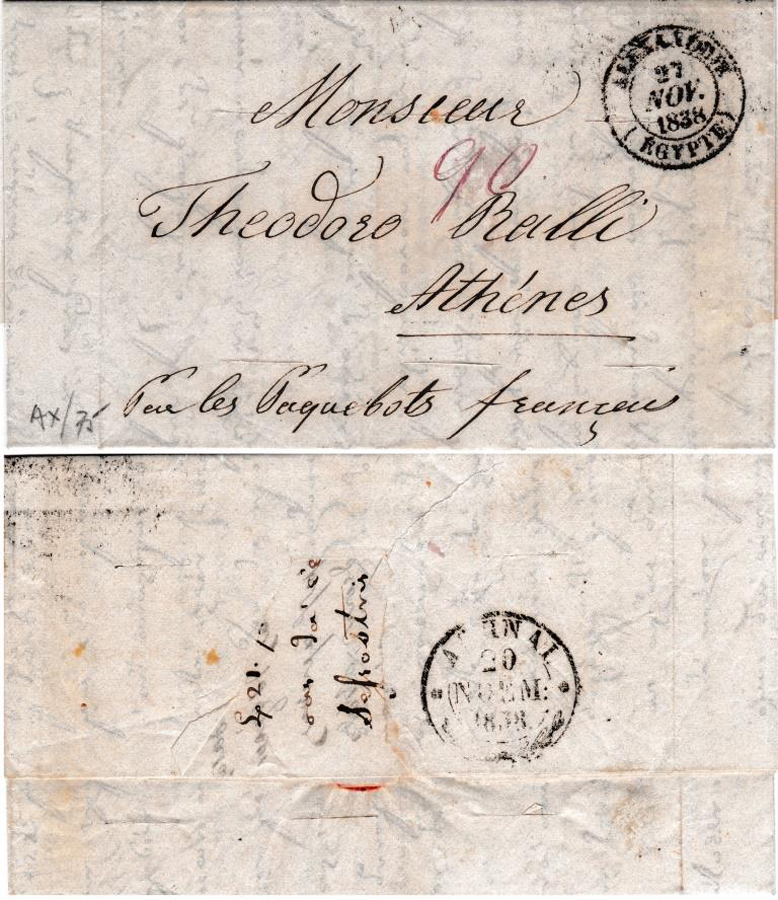 ALEXANDRIE
27
NOV.
1838
(EGYPTE)
Monsieur
90
Theodoro Ralli
Athénes
Par les Paquebots français
AX/75
20
ΝΟΕΜ:
1838